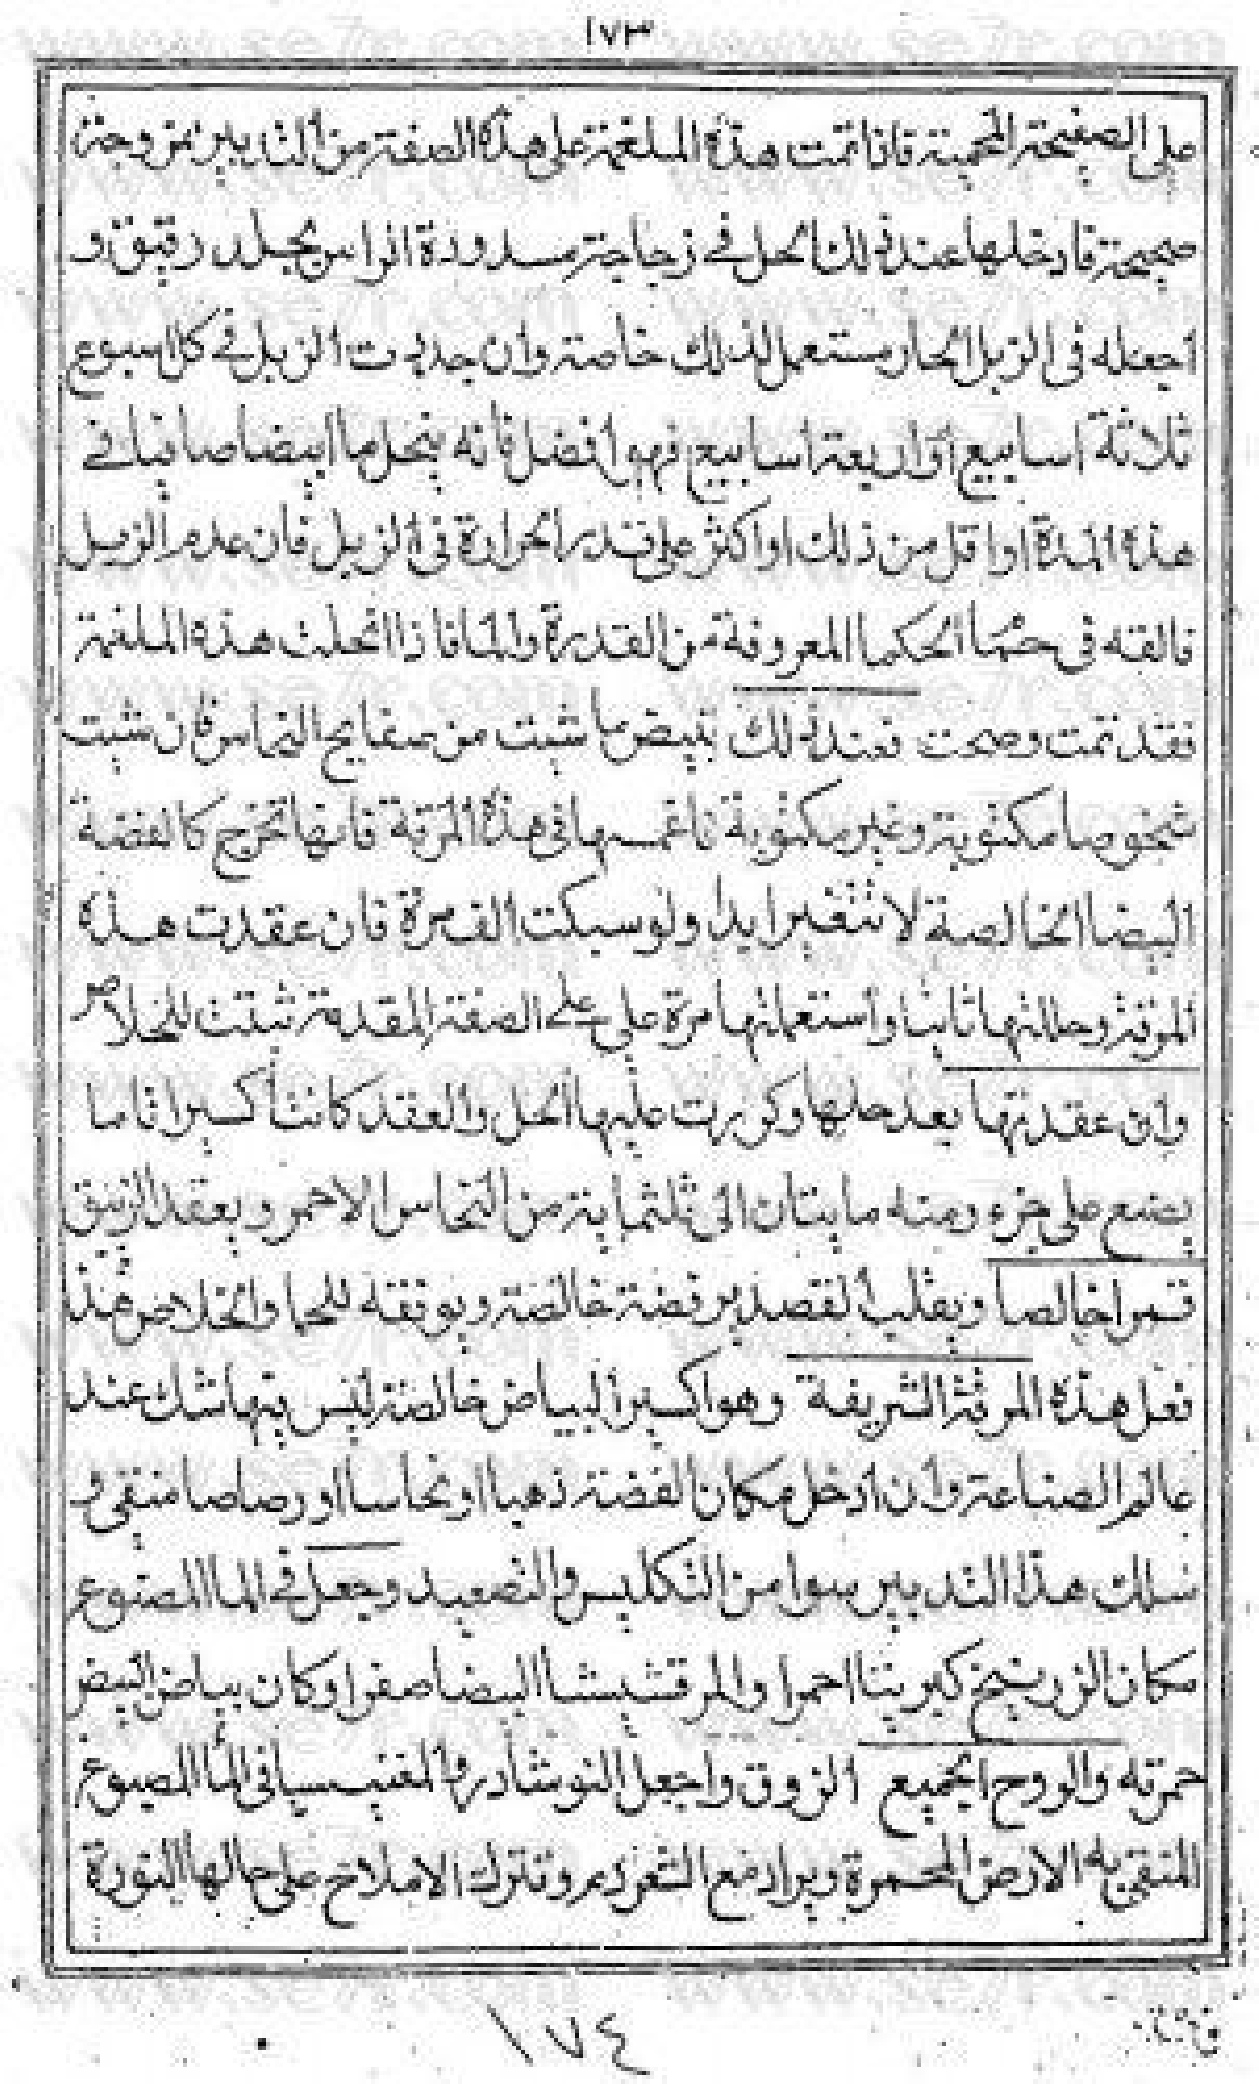 ١٧٣
على الصفيحة المحمية فاذا تمت هذه الملغمة على هذه الصفة من التدبير ممزوجة
صحيحة فادخلها عند ذلك الحل في زجاجة مسدودة الراس بجلد رقيق و
اجعله فى الزبل الحار مستعمل لذلك خاصة وان جددت الزبل في كل اسبوع
ثلاثة اسابيع او اربعة اسابيع فهو افضل فانه ينحل ما ابيضا صافيا في
هذه المدة او اقل من ذلك او اكثر على قدر الحرارة فى الزبل فان عدم الزبل
فالقه فى حمام الحكما المعروفة من القدرة والما فاذا انحلت هذه الملغمة
فقد تمت وصحت فعند ذلك تبيض ما شيت من صفايح النحاس فان شيت
شخوصا مكتوبة وغير مكتوبة فاغمسها فى هذه المرتة فانها تخرج كالفضة
البيضا الخالصة لا تتغير ابدا ولو سبكت الف مرة فان عقدت هذه
المرتة وحللتها ثانيا واستعملتها مرة على على الصفة المقدمة ثبتت للخلاص
وان عقدتها بعد حلها وكررت عليها الحل والعقد كانت اكسيرا تاما
يصبع على جزء ومنه مايتان الى ثلثماية من النحاس الاحمر ويعقد الزيبق
قمرا خالصا ويقلب القصدير فضة خالصة ويوقفه للحما والخلاص هذا
فعل هذه المرتة الشريفة وهو اكسير البياض خالصة ليس فيها شك عند
عالم الصناعة وان ادخل مكان الفضة ذهبا او نحاسا او رصاصا منقى و
سلك هذا التدبير سوا من التكليس والتصعيد وجعل في الما المصنوع
مكان الزرنيخ كبريتا احمرا والمرقشيشا البيضا صفرا وكان بياض البيض
حمرته والروح الجميع الزوق واجعل النوشادر والمغنيسيا فى الما المصبوغ
المنقى به الارض المحمرة ويرادفع وتترك الاملاح على حالها النورة
١٧٤